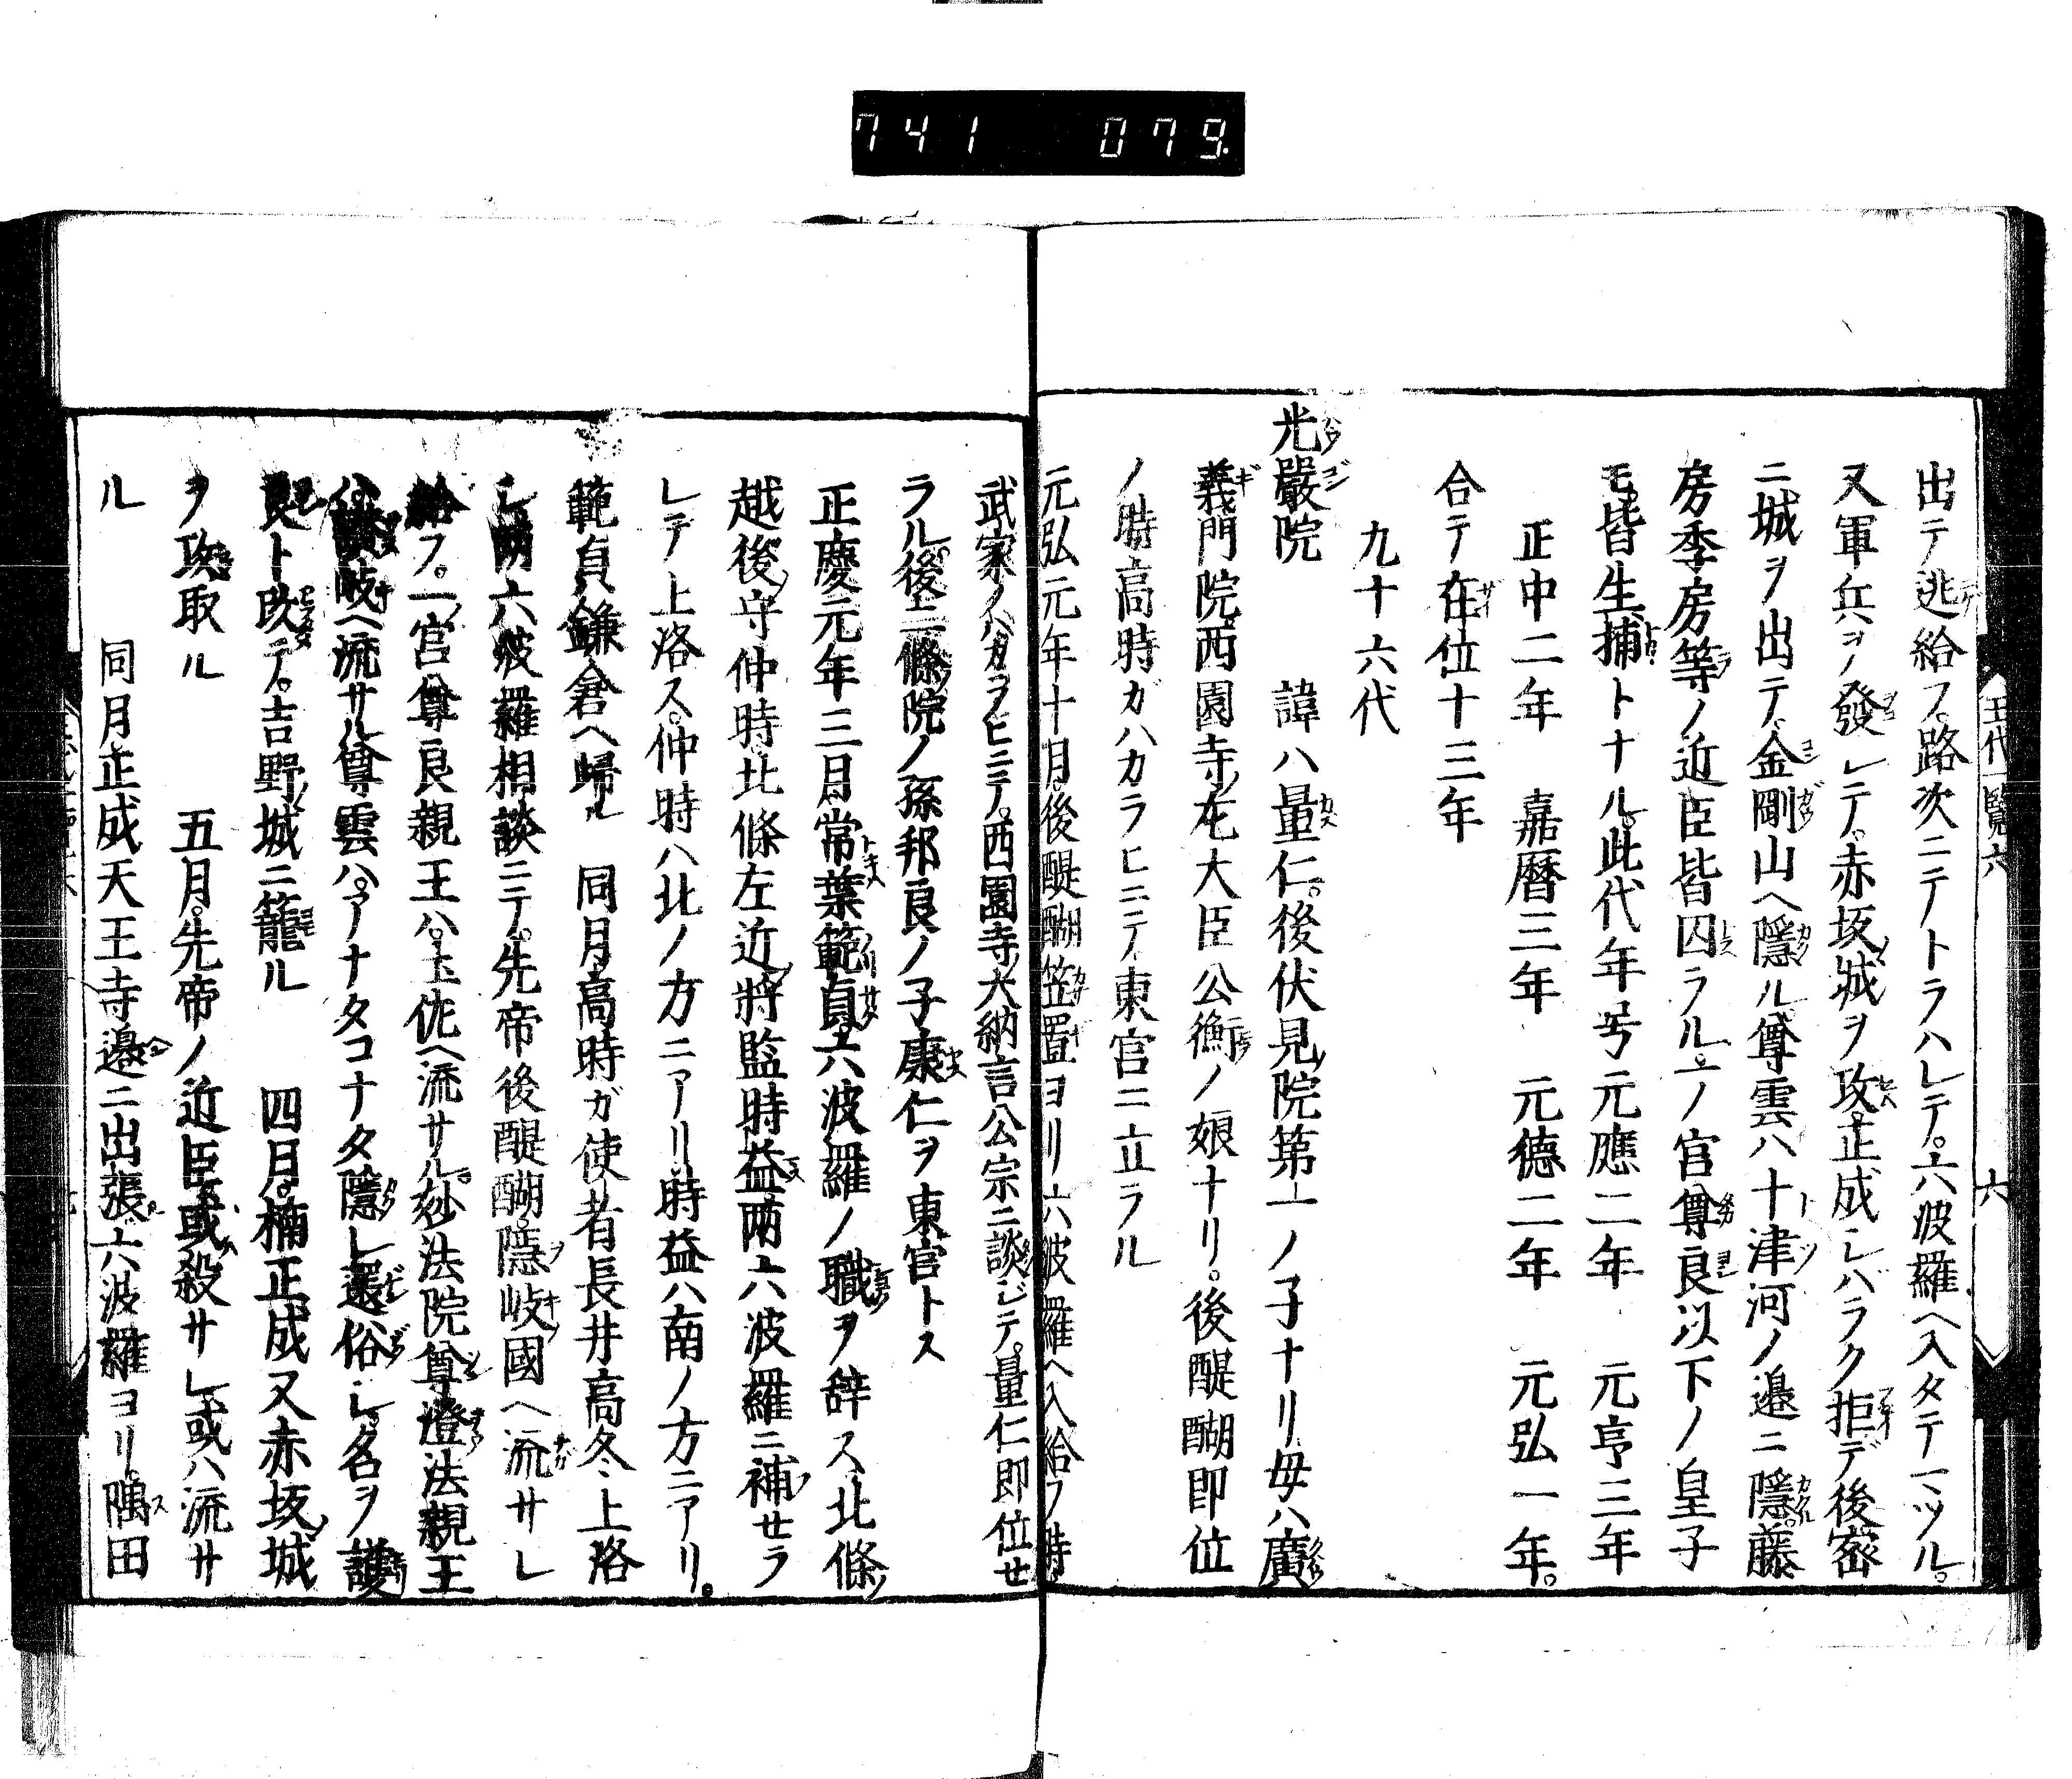 741 079.
王代一覧六 六
出テ逃給フ。路次ニテトラハレテ。六波羅ヘ入タテマツル。
又軍兵ヲ發シテ。赤坂城ヲ攻。正成シバラク拒デ後密
ニ城ヲ出テ。金剛山ヘ隱ル。尊雲ハ十津河ノ邉ニ隱。藤
房季房等ノ近臣皆囚ラル。一ノ宮尊良以下ノ皇子
モ皆生捕トナル。此代年号元應二年 元亨三年
正中二年 嘉暦三年 元徳二年 元弘一年。
合テ在位十三年
九十六代
光嚴院 諱ハ量仁。後伏見院第一ノ子ナリ。母ハ廣
義門院。西園寺左大臣公衡ノ娘ナリ。後醍醐即位
ノ時高時ガハカラヒニテ東宮ニ立ラル
元弘元年十月。後醍醐笠置ヨリ六波羅ヘ入給フ時。
武家ノハカラヒニテ。西園寺大納言公宗ニ談ジテ。量仁即位セ
ラル。後二條院ノ孫邦良ノ子康仁ヲ東宮トス
正慶元年三月。常葉範貞。六波羅ノ職ヲ辞ス。北條
越後守仲時。北條左近將監時益。兩六波羅ニ補セラ
レテ上洛ス。仲時ハ北ノ方ニアリ。時益ハ南ノ方ニアリ。
範貞鎌倉ヘ歸ル 同月高時ガ使者長井高冬上洛
シ。兩六波羅相談ニテ。先帝後醍醐。隱岐國ヘ流サレ
給フ。一宮尊良親王ハ。土佐ヘ流サル。妙法院尊澄法親王
ハ。讃岐ヘ流サル。尊雲ハ。アナタコナタ隱レ還俗シ。名ヲ護
良ト改テ。吉野城ニ籠ル 四月。楠正成又赤坂城
ヲ攻取ル 五月。先帝ノ近臣。或ハ殺サレ。或ハ流サ
ル 同月正成天王寺邉ニ出張。六波羅ヨリ。隅田